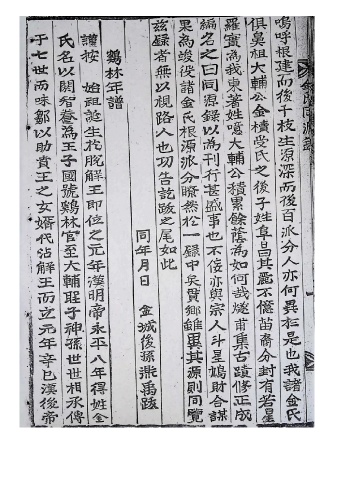 嗚呼根建而後千枝生源深而後百派分人亦何異於是也我諸金氏
俱鼻祖大輔公金櫝受氏之後子姓阜昌其麗不億苗裔分封有若星
羅實爲我東著姓噫大輔公積累餘蔭爲如何哉遂甫集古蹟修正成
編名之曰同源録以爲刊行甚盛事也不佞亦與宗人斗星鳩財合謀
果爲竣役諸金氏根源派分瞭然於一録中矣貫鄕雖異其源則同覽
玆録者無以視路人也功告訖跋之尾如此
同年月日 金城後孫 禹跋
鷄林年譜
謹按 始祖誕生於脫解王即位之元年漢明帝永平八年得姓金
氏名以閼智養爲王子國號鷄林官至大輔聖子神孫世世相承傳
于七世而味鄒以助賁王之女婿代沾解王而立元年辛巳漢後帝